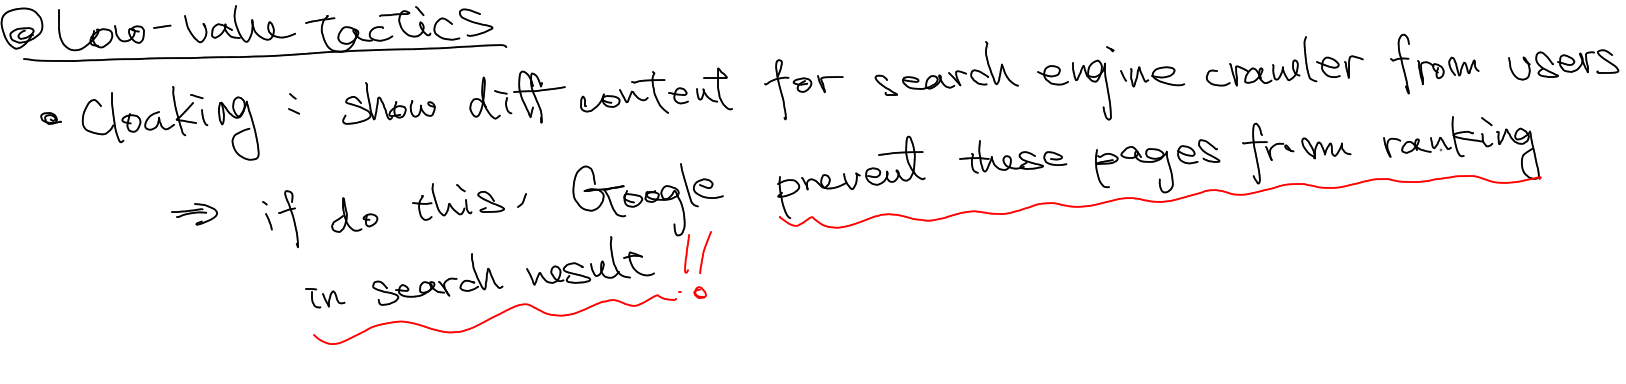 ◎ Low-value tactics
• Cloaking : show diff content for search engine crawler from users
⇒ if do this, Google prevent these pages from ranking
in search result !!